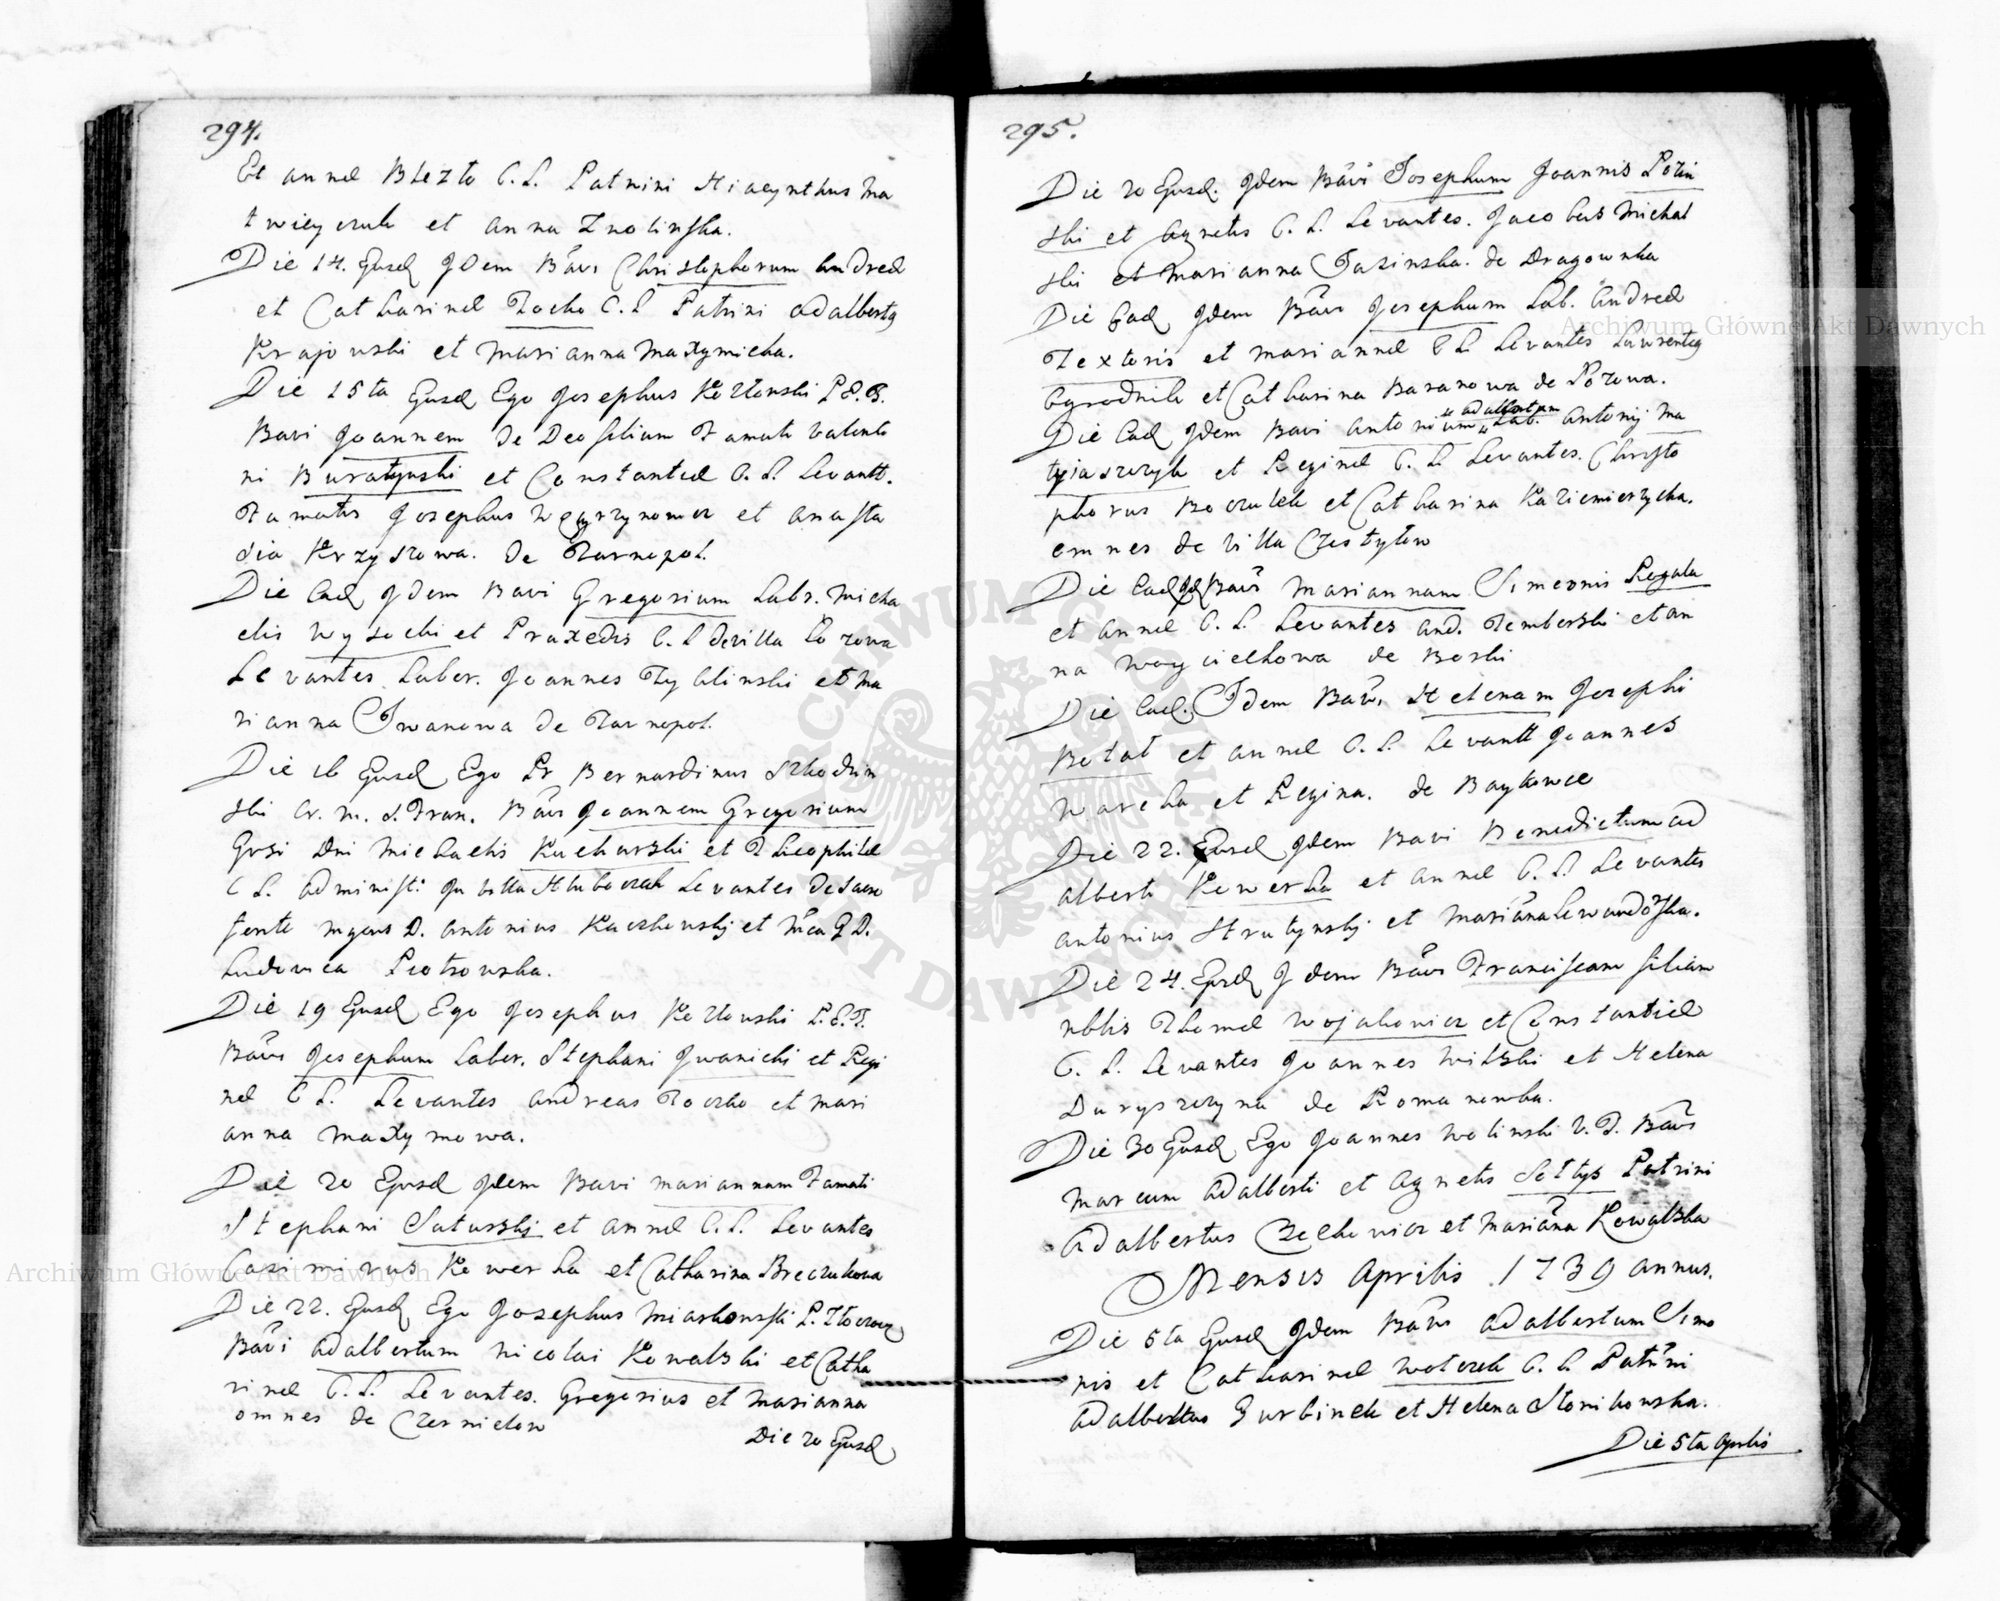 294.
Et annæ Blezto C. L. Patrini Hiacynthus Ma
twieyczuk et anna Znolinska.
Die 14. Ejusd Idem Bavi Christophorum Andreæ
et Catharinæ Tocko C. L Patrini adalbertg
Krajowski et Marianna Maxymicha.
Die 15ta Ejusd Ego Josephus Kozłowski P.E.T.
Bavi Joannem de Deo filium Famati Valenti
ni Buratynski et Constantiæ C. L. Levantt.
Famatus Josephus Węgrzynowicz et Anasta
sia Krzyszowa. de Tarnopol.
Die Ead Idem Bavi Gregorium Labr. Micha
elis Wysocki et Praxedis C. L de villa Łozowa
Levantes Labor. Joannes Zyblinski et Ma
rianna Iwanowa de Tarnopol.
Die 16 Ejusd Ego Pr Bernardinus Szkodzin
ski Or. M. S. Fran. Bavi Joannem Gregorium
Grosi Dni Michaelis Kucharski et Theophilæ
C L. administ: in villa Hluboczek Levantes de sacro
fonte Mgcus D. Antonius Kaczkowskj et Mca G D.
Ludovica Piotrowska.
Die 19 Ejusd Ego Josephus Kozłowski P.E.T.
Bavi Josephum Labor. Stephani Iwanicki et Regi
næ C L. Levantes Andreas Toczko et Mari
anna Maxymowa.
Die 20 Ejusd Idem Bavi Mariannam Famati
Stephani Saturskj et Annæ C. L. Levantes
Casimirus Kowerka et Catharina Breczukowa
Die 22. Ejusd Ego Josephus Miaskowski P. Złoczow
Bavi adalbertum Nicolai Kowalski et Catha
rinæ C. L. Levantes. Gregorius et Marianna
omnes de Czernielow
Die 20 Ejusd
295.
Die 20 Ejusd. Idem Bavi Josephum Joannis Łozin
ski et Agnetis C. L. Levantes. Jacobus Michal
ski et Marianna Jasinska. de Dragowka
Die Ead Idem Bavi Josephum Lab. Andreæ
Textoris et Mariannæ C L Levantes Lawrentig
Ogrodnik et Catharina Baranowa de Łozowa.
Die Ead Idem Bavi Antonium adalbertum Lab. Antonij Ma
tyjaszczyk et Reginæ C. L Levantes. Christo
phorus Boczulek et Catharina Kazimierzycha.
omnes de Villa Czystyłow
Die Ead Id Bavi Mariannam Simeonis Rogala
et Annæ C. L. Levantes And. Demberski et an
na Woyciekowa de Borki
Die Ead. Idem Bavi. Helenam Josephi
Botat et Annæ C. L. Levantt Joannes
Warcha et Regina. de Baykowce
Die 22. Ejusd Idem Bavi Benedictum ad
alberti Kowerka et Annæ C. L. Levantes
Antonius Strutynskj et Mariana Lewandoska.
Die 24. Ejusd Idem Bavi Franciscam filiam
nbblis Thomæ Wojakowicz et Constantiæ
C. L. Levantes Joannes Wilski et Helena
Daryszczyna de Romanowka.
Die 30 Ejusd Ego Joannes Wolinski V. T. Bavi
Marcum adalberti et Agnetis Sołtys Patrini
Adalbertus Czechowicz et Mariana Kowalska
Mensis Aprilis 1739 annus.
Die 5ta Ejusd Idem Bavi adalbertum Simo
nis et Catharinæ Wołczek C. L. Patrini
Adalbertus Gurbinek et Helena Słonikowska.
Die 5ta Aprilis
Archiwum Główne Akt Dawnych
Archiwum Główne Akt Dawnych
ARCHIWUM GŁÓWNE AKT DAWNYCH